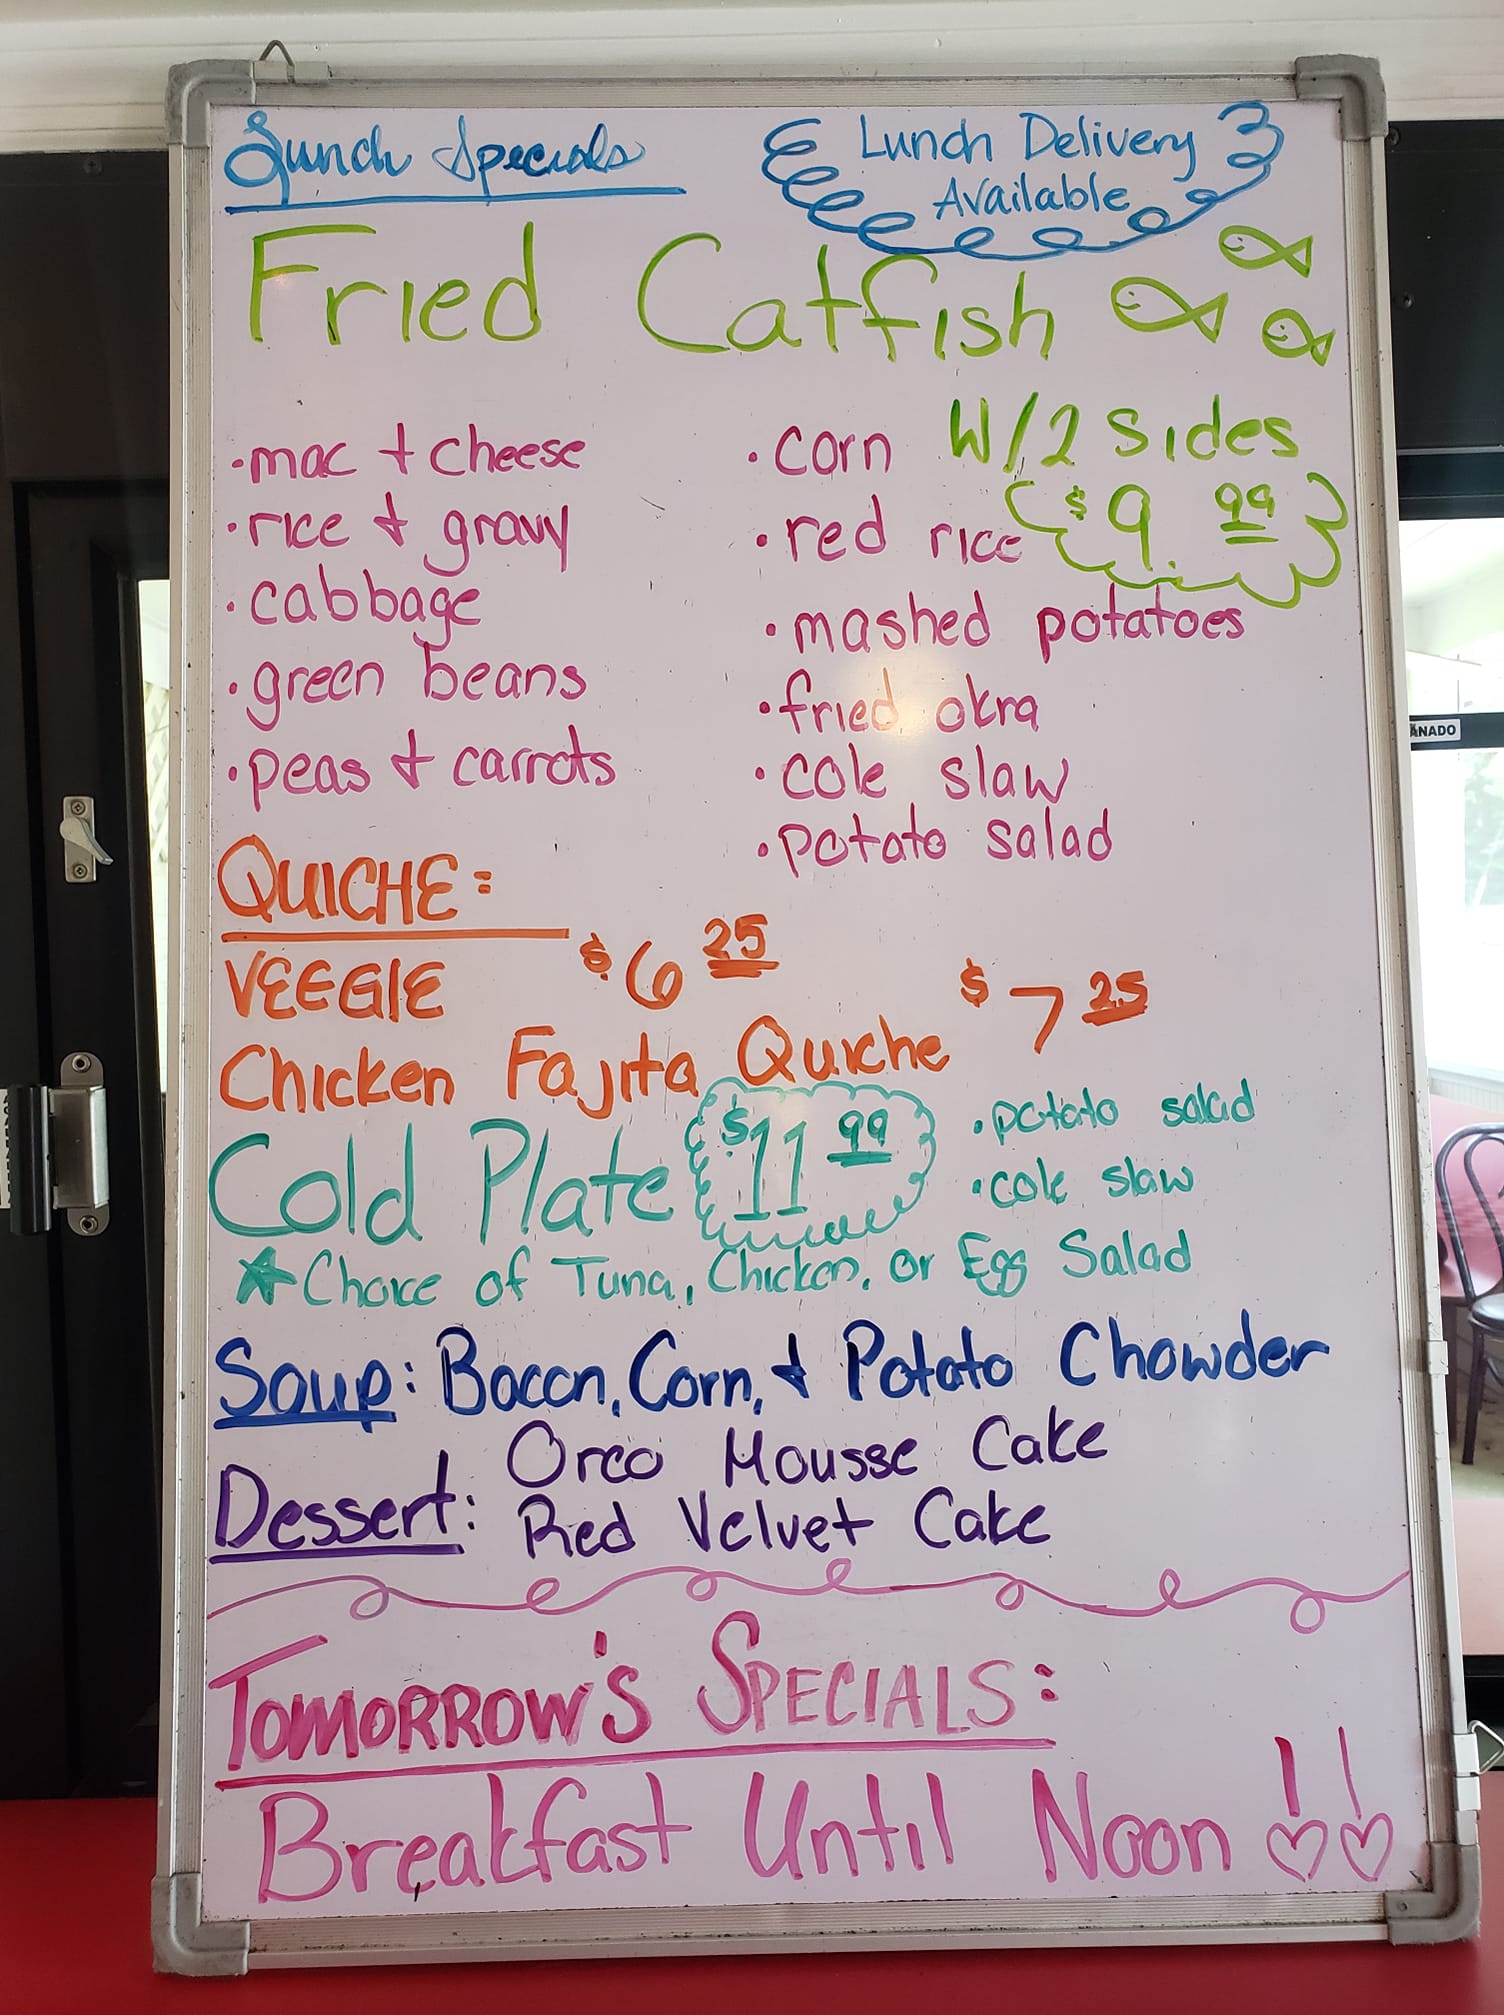 Lunch Specials
Lunch Delivery
Available
Fried Catfish
W/2 Sides
$9.99
• mac + cheese
• rice + gravy
• cabbage
• green beans
• peas + carrots
• corn
• red rice
• mashed potatoes
• fried okra
• cole slaw
• potato salad
QUICHE:
VEGGIE $6 25
Chicken Fajita Quiche $7 25
Cold Plate $11 99
• potato salad
• cole slaw
★ Choice of Tuna, Chicken, or Egg Salad
Soup: Bacon, Corn, + Potato Chowder
Dessert: Oreo Mousse Cake
Red Velvet Cake
TOMORROW'S SPECIALS:
Breakfast Until Noon !!
ANADO